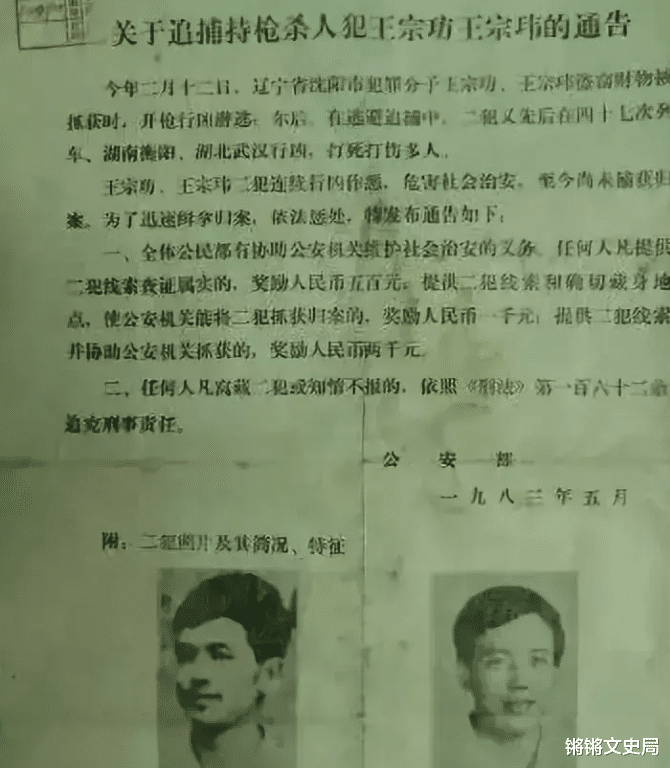 关于追捕持枪杀人犯王宗㓛王宗玮的通告
今年二月十二日，辽宁省沈阳市犯罪分子王宗㓛、王宗玮盗窃财物被
抓获时，开枪行凶潜逃；尔后，在逃避追捕中，二犯又先后在四十七次列
车、湖南衡阳、湖北武汉行凶，打死打伤多人。
王宗㓛、王宗玮二犯连续行凶作恶，危害社会治安，至今尚未捕获归
案。为了迅速缉拿归案，依法惩处，特发布通告如下：
一、全体公民都有协助公安机关维护社会治安的义务。任何人凡提供
二犯线索查证属实的，奖励人民币五百元；提供二犯线索和确切藏身地
点，使公安机关能将二犯抓获归案的，奖励人民币一千元；提供二犯线索
并协助公安机关抓获的，奖励人民币两千元。
二、任何人凡窝藏二犯或知情不报的，依照《刑法》第一百六十二条
追究刑事责任。
公安部
一九八三年五月
附：二犯照片及其简况、特征
锵锵文史局